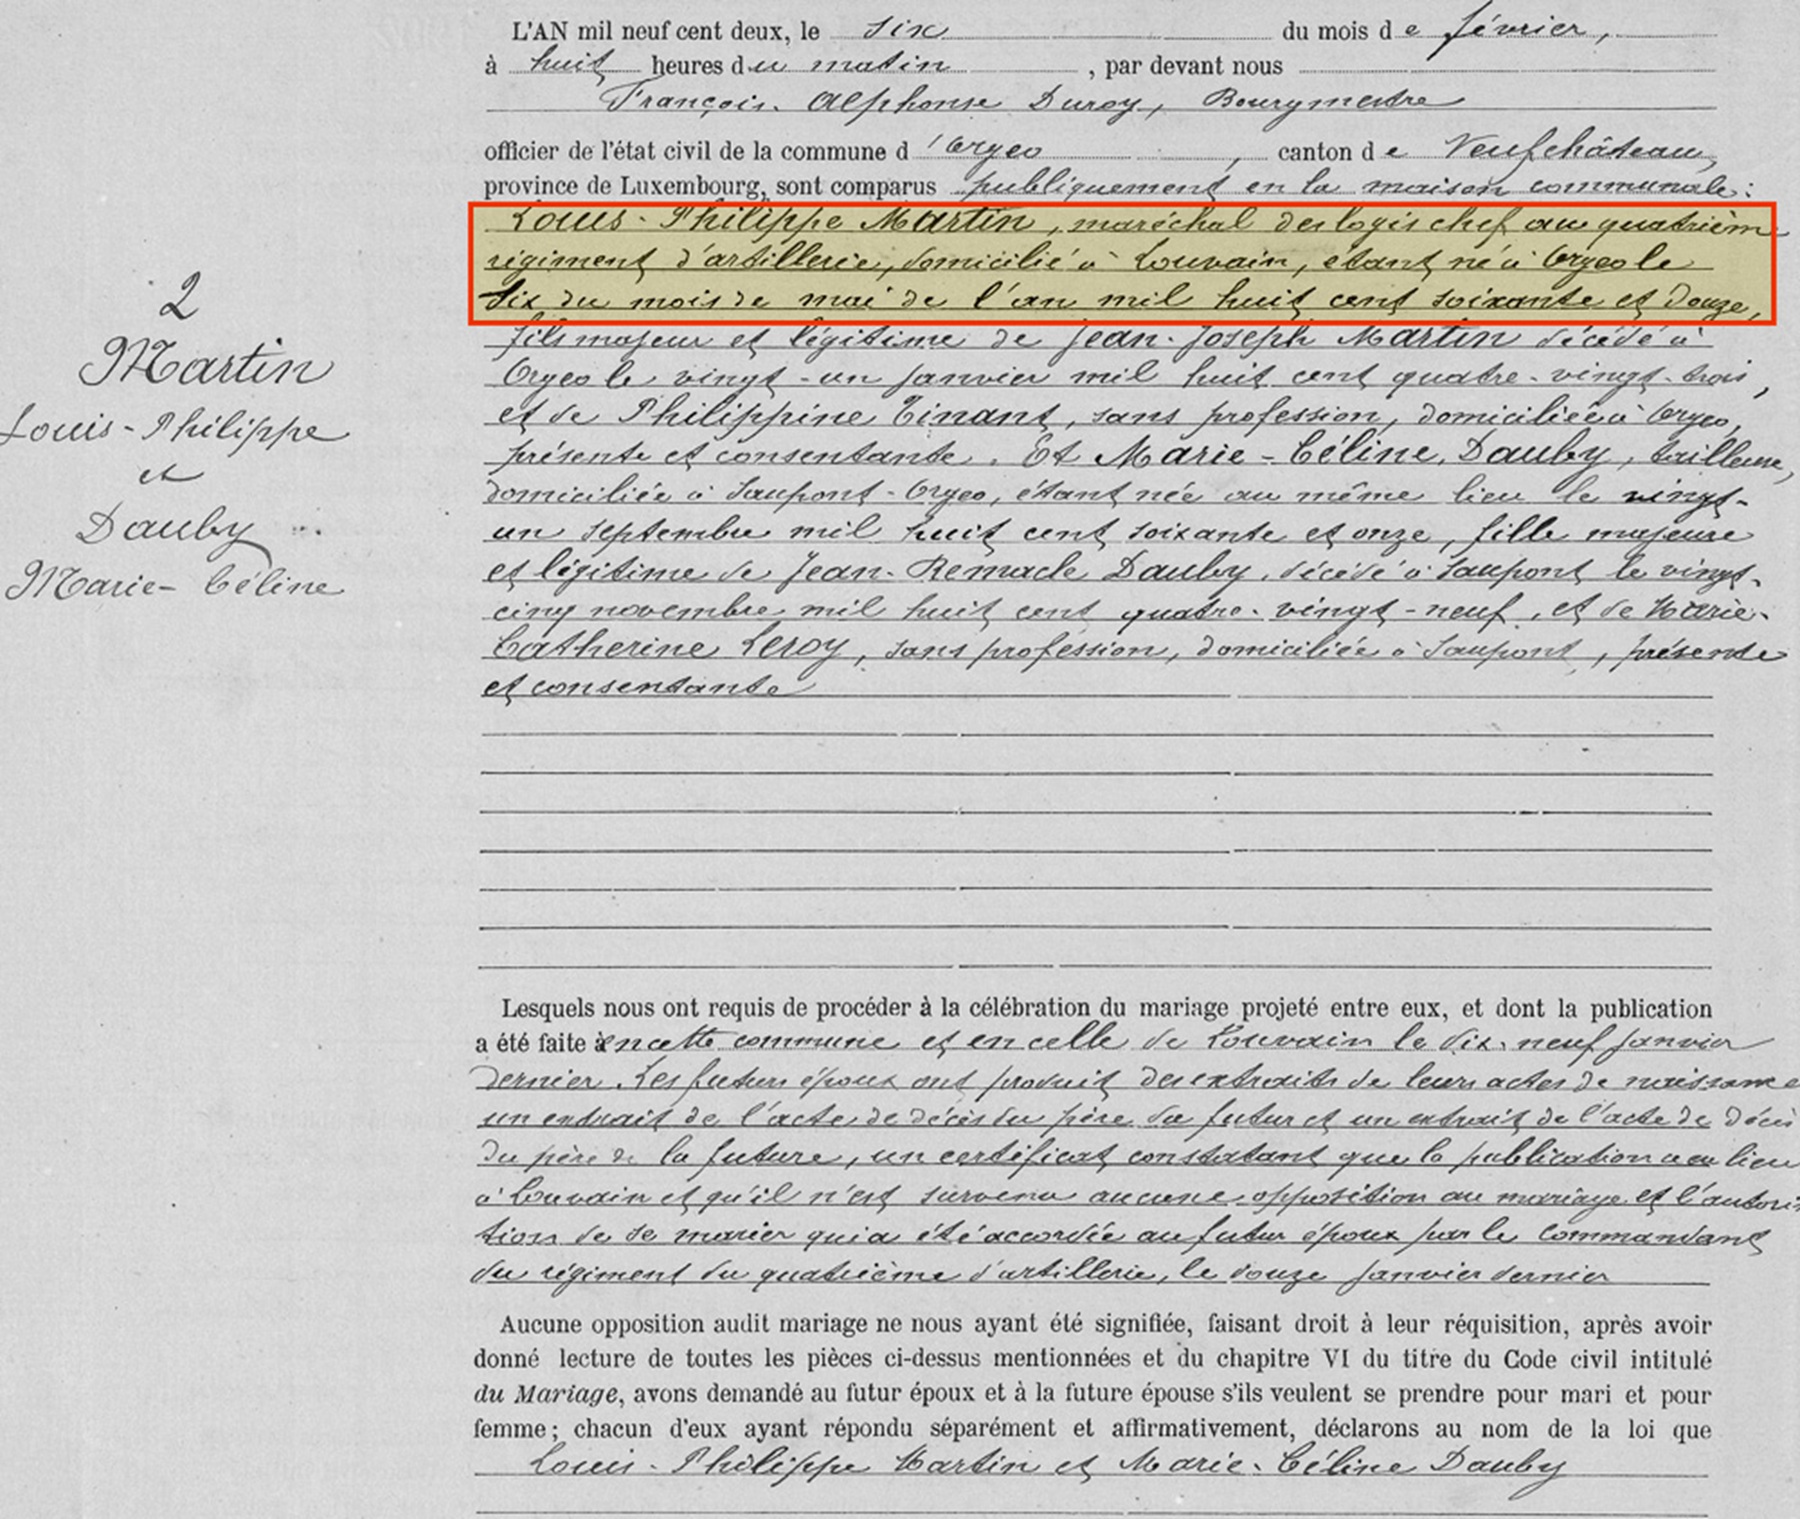 L'AN mil neuf cent deux, le six du mois de février,
à huit heures du matin, par devant nous
François-Alphonse Duroy, Bourgmestre
officier de l'état civil de la commune d'Orgeo, canton de Neufchâteau,
province de Luxembourg, sont comparus publiquement en la maison communale:
Louis-Philippe Martin, maréchal des logis chef au quatrième
régiment d'artillerie, domicilié à Louvain, étant né à Orgeo le
six du mois de mai de l'an mil huit cent soixante et douze,
2
Martin
Louis-Philippe
et
Dauby
Marie-Céline
fils majeur et légitime de Jean-Joseph Martin décédé à
Orgeo le vingt-un janvier mil huit cent quatre-vingt-trois,
et de Philippine Tinant, sans profession, domiciliée à Orgeo,
présente et consentante. Et Marie-Céline, Dauby, tailleuse,
domiciliée à Saupont-Orgeo, étant née au même lieu le vingt-
un septembre mil huit cent soixante et onze, fille majeure
et légitime de Jean-Remacle Dauby, décédé à Saupont le vingt-
cinq novembre mil huit cent quatre-vingt-neuf, et de Marie-
Catherine Leroy, sans profession, domiciliée à Saupont, présente
et consentante
Lesquels nous ont requis de procéder à la célébration du mariage projeté entre eux, et dont la publication
a été faite à en cette commune et en celle de Louvain le dix-neuf janvier
dernier. Les futurs époux ont produit des extraits de leurs actes de naissance
un extrait de l'acte de décès du père du futur et un extrait de l'acte de décès
du père de la future, un certificat constatant que la publication a eu lieu
à Louvain et qu'il n'est survenu aucune opposition au mariage et l'autori-
tion de se marier qui a été accordée au futur époux par le Commandant
du régiment du quatrième d'artillerie, le douze janvier dernier
Aucune opposition audit mariage ne nous ayant été signifiée, faisant droit à leur réquisition, après avoir
donné lecture de toutes les pièces ci-dessus mentionnées et du chapitre VI du titre du Code civil intitulé
du Mariage, avons demandé au futur époux et à la future épouse s'ils veulent se prendre pour mari et pour
femme; chacun d'eux ayant répondu séparément et affirmativement, déclarons au nom de la loi que
Louis-Philippe Martin et Marie-Céline Dauby